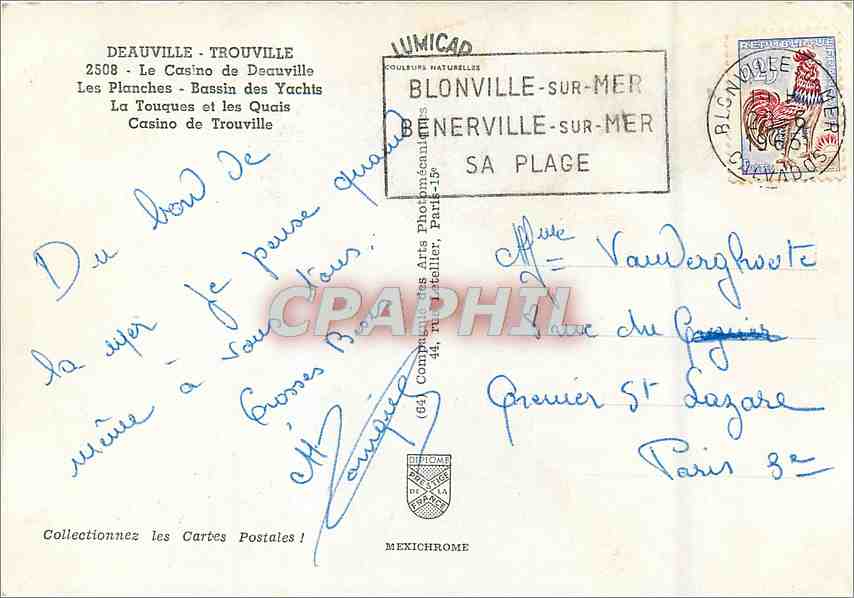 DEAUVILLE - TROUVILLE
2508 - Le Casino de Deauville
Les Planches - Bassin des Yachts
La Touques et les Quais
Casino de Trouville
LUMICAP
COULEURS NATURELLES
BLONVILLE-SUR-MER
BENERVILLE-SUR-MER
SA PLAGE
BLONVILLE MER
CALVADOS
Du bord de
la mer je pense quand
même à vous tous.
Grosses Bises
(64) Compagnie des Arts Photomécaniques
44, rue Letellier, Paris-15e
CPAPHIL
Mme
Vanderghoote
Rue du
Grenier St Lazare
Paris 3e
DIPLOME
PRESTIGE
DE LA
FRANCE
Collectionnez les Cartes Postales !
MEXICHROME